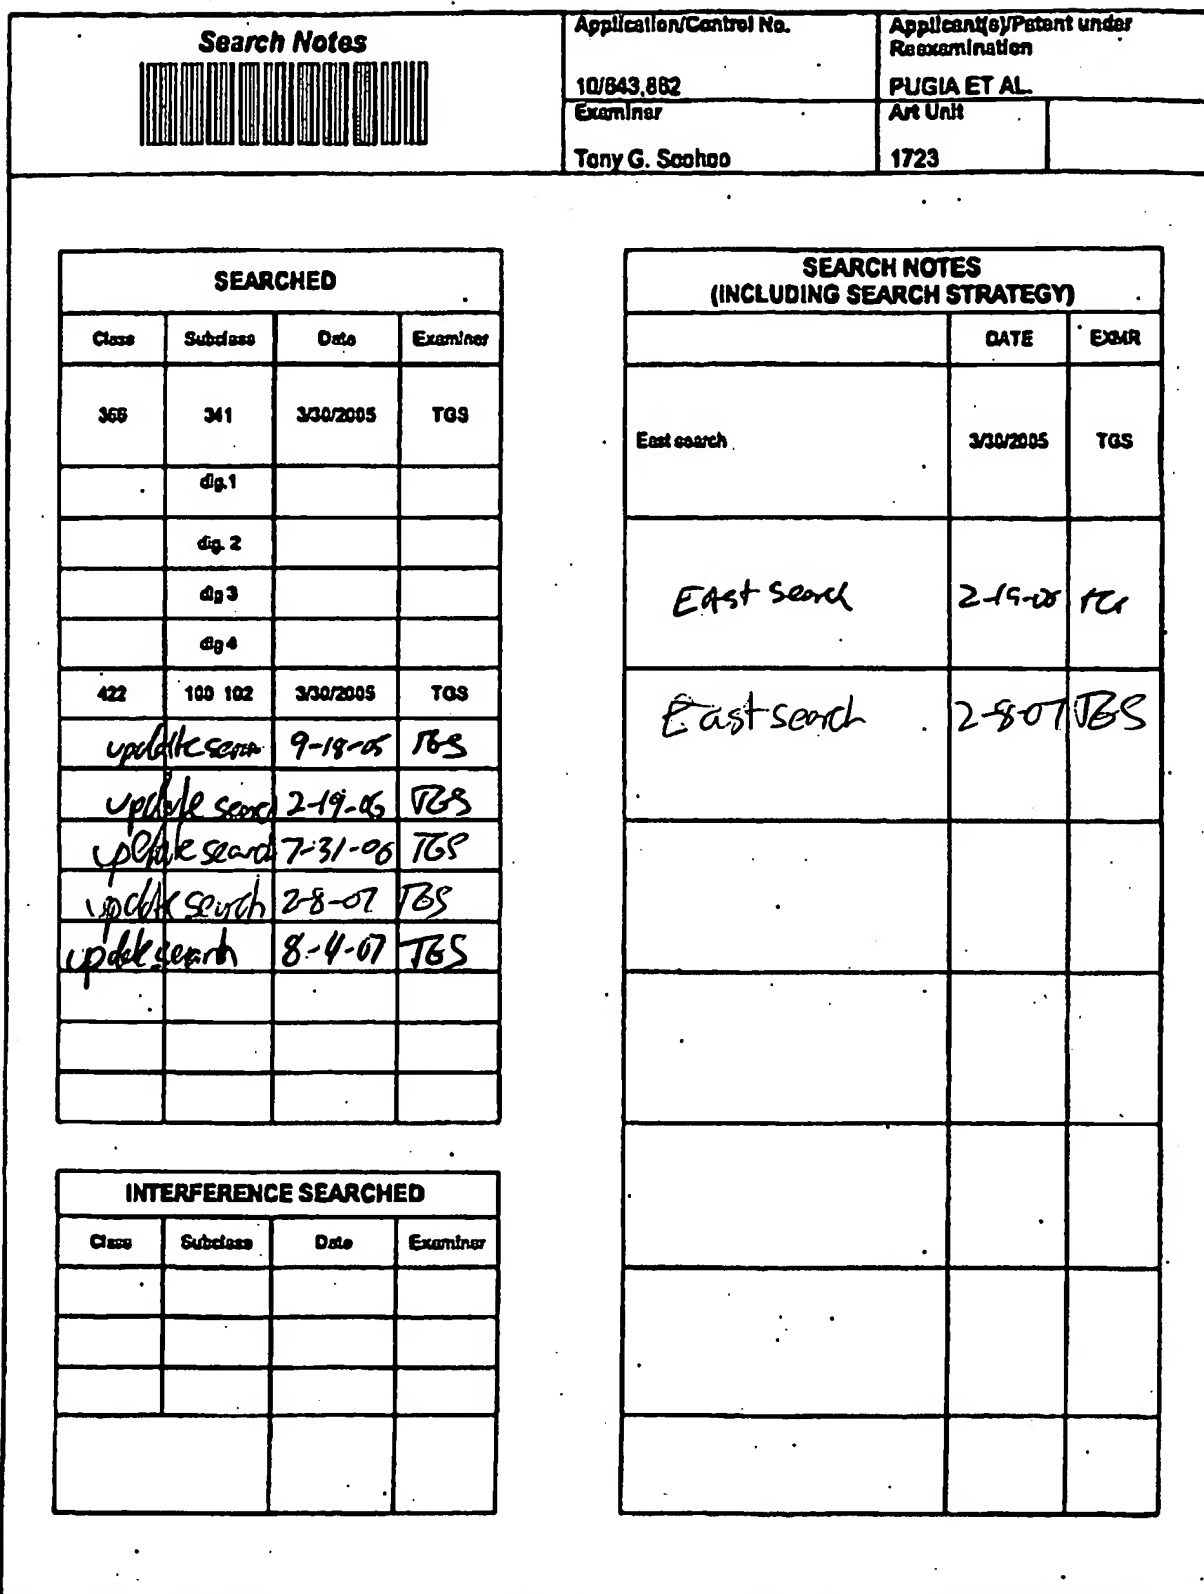 Search Notes
Application/Control No.
10/643,862
Applicant(s)/Patent under
Reexamination
PUGIA ET AL.
Examiner
Tony G. Soohoo
Art Unit
1723
SEARCHED
Class Subclass Date Examiner
366 341 3/30/2005 TGS
dig.1
dig. 2
dig 3
dig 4
422 100 102 3/30/2005 TGS
update search 9-18-05 TGS
update search 2-19-06 TGS
update search 7-31-06 TGS
update search 2-8-07 TGS
update search 8-4-07 TGS
INTERFERENCE SEARCHED
Class Subclass Date Examiner
SEARCH NOTES
(INCLUDING SEARCH STRATEGY)
DATE EXMR
East search 3/30/2005 TGS
EAst search 2-19-06 TGS
East search 2-8-07 TGS